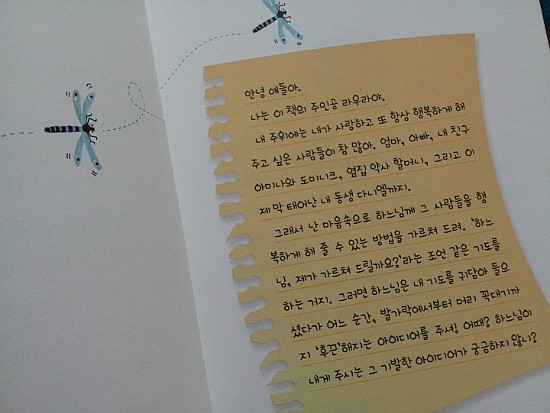 안녕 얘들아.
나는 이 책의 주인공 라우라야.
내 주위에는 내가 사랑하고 또 항상 행복하게 해
주고 싶은 사람들이 참 많아. 엄마, 아빠, 내 친구
아미나와 도미니크, 옆집 약사 할머니, 그리고 이
제 막 태어난 내 동생 다니엘까지.
그래서 난 마음속으로 하느님께 그 사람들을 행
복하게 해 줄 수 있는 방법을 가르쳐 드려. '하느
님, 제가 가르쳐 드릴까요?'라는 조언 같은 기도를
하는 거지. 그러면 하느님은 내 기도를 귀담아 들으
셨다가 어느 순간, 발가락에서부터 머리 꼭대기까
지 '후끈'해지는 아이디어를 주셔! 어때? 하느님이
내게 주시는 그 기발한 아이디어가 궁금하지 않니?